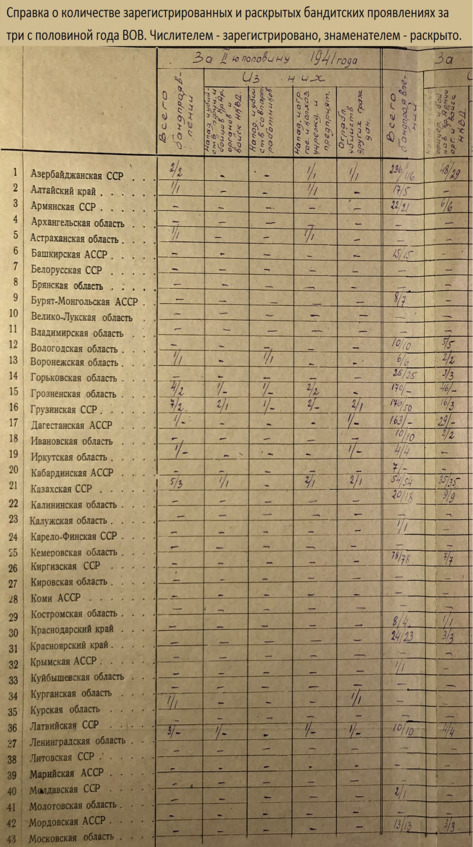 Справка о количестве зарегистрированных и раскрытых бандитских проявлениях за
три с половиной года ВОВ. Числителем - зарегистрировано, знаменателем - раскрыто.
За II ю половину 1941 года
За
Из них
Всего бандпрояв-лений
орган. и войск НКВД.
работников
предприят.
граждан.
Всего
НКВД.
1 Азербайджанская ССР 2/2 - - 1/1 1/1 236/116 48/29
2 Алтайский край 1/1 - - 1/1 - 17/5 -
3 Армянская ССР - - - - - 22/21 6/6
4 Архангельская область - - - - - - -
5 Астраханская область 1/1 - - 1/1 - - -
6 Башкирская АССР - - - - - 15/15 -
7 Белорусская ССР - - - - - - -
8 Брянская область - - - - - - -
9 Бурят-Монгольская АССР - - - - - 8/7 -
10 Велико-Лукская область - - - - - - -
11 Владимирская область - - - - - - -
12 Вологодская область - - - - - 10/10 5/5
13 Воронежская область 1/1 - 1/1 - - 6/6 2/2
14 Горьковская область - - - - - 25/25 3/3
15 Грозненская область 4/2 1/- 1/- 2/2 - 170/- 46/-
16 Грузинская ССР 7/2 2/1 1/- 2/- 2/1 170/50 16/3
17 Дагестанская АССР 1/- - - - 1/- 163/- 29/-
18 Ивановская область - - - - - 10/10 2/2
19 Иркутская область 1/- - - - 1/- 4/4 -
20 Кабардинская АССР - - - - - 7/- -
21 Казахская ССР 5/3 1/1 - 2/1 2/1 54/54 35/35
22 Калининская область - - - - - 20/18 9/9
23 Калужская область - - - - - - -
24 Карело-Финская ССР - - - - - 1/1 -
25 Кемеровская область - - - - - - -
26 Киргизская ССР - - - - - 78/78 7/7
27 Кировская область - - - - - - -
28 Коми АССР - - - - - - -
29 Костромская область - - - - - - -
30 Краснодарский край - - - - - 8/4 1/1
31 Красноярский край - - - - - 24/23 3/3
32 Крымская АССР - - - - - - -
33 Куйбышевская область - - - - - 1/1 -
34 Курганская область - - - - - - -
35 Курская область 1/1 - - - 1/1 - -
36 Латвийская ССР - - - - - - -
37 Ленинградская область 3/- 1/- - 1/- 1/- 10/10 4/4
38 Литовская ССР - - - - - - -
39 Марийская АССР - - - - - - -
40 Молдавская ССР - - - - - - -
41 Молотовская область - - - - - 2/1 -
42 Мордовская АССР - - - - - - -
43 Московская область - - - - - 13/13 3/3